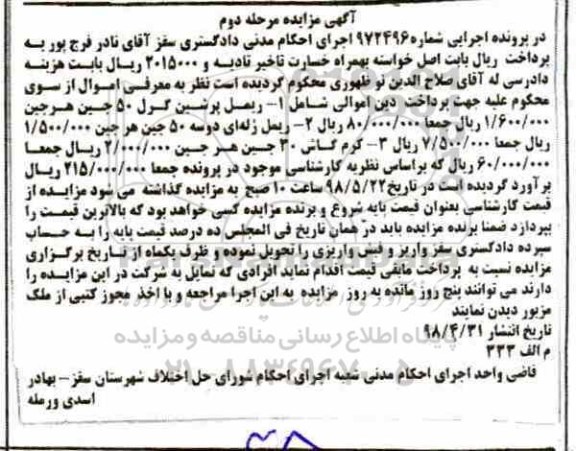 آگهی مزایده مرحله دوم
در پرونده اجرایی شماره ۹۷۲۴۹۶ اجرای احکام مدنی دادگستری سقز آقای نادر فرج پور به
پرداخت ریال بابت اصل خواسته بهمراه خسارت تاخیر تادیه و ۲۰۱۵۰۰۰ ریال بابت هزینه
دادرسی له آقای صلاح الدین نوظهوری محکوم گردیده است نظر به معرفی اموال از سوی
محکوم علیه جهت پرداخت دین اموالی شامل ۱- ریمل پرشین گرل ۵۰ جین هر جین
۱/۶۰۰/۰۰۰ ریال جمعا ۸۰/۰۰۰/۰۰۰ ریال ۲- ریمل ژله‌ای دوسه ۵۰ جین هر جین ۱/۵۰۰/۰۰۰
ریال جمعا ۷/۵۰۰/۰۰۰ ریال ۳- کرم گاش ۳۰ جین هر جین ۲/۰۰۰/۰۰۰ ریال جمعا
۶۰/۰۰۰/۰۰۰ ریال که براساس نظریه کارشناسی موجود در پرونده جمعا ۲۱۵/۰۰۰/۰۰۰ ریال
برآورد گردیده است در تاریخ ۹۸/۵/۲۲ ساعت ۱۰ صبح به مزایده گذاشته می شود مزایده از
قیمت کارشناسی بعنوان قیمت پایه شروع و برنده مزایده کسی خواهد بود که بالاترین قیمت را
بپردازد ضمنا برنده مزایده باید در همان تاریخ فی المجلس ده درصد قیمت پایه را به حساب
سپرده دادگستری سقز واریز و فیش واریزی را تحویل نموده و ظرف یکماه از تاریخ برگزاری
مزایده نسبت به پرداخت مابقی قیمت اقدام نماید افرادی که تمایل به شرکت در این مزایده را
دارند می توانند پنج روز مانده به روز مزایده به این اجرا مراجعه و با اخذ مجوز کتبی از ملک
مزبور دیدن نمایند
تاریخ انتشار ۹۸/۴/۳۱
م الف ۳۳۳
قاضی واحد اجرای احکام مدنی شعبه اجرای احکام شورای حل اختلاف شهرستان سقز – بهادر
اسدی ورمله
پایگاه اطلاع رسانی مناقصه و مزایده
۰۲۱-۸۸۳۴۹۶۷۰-۵